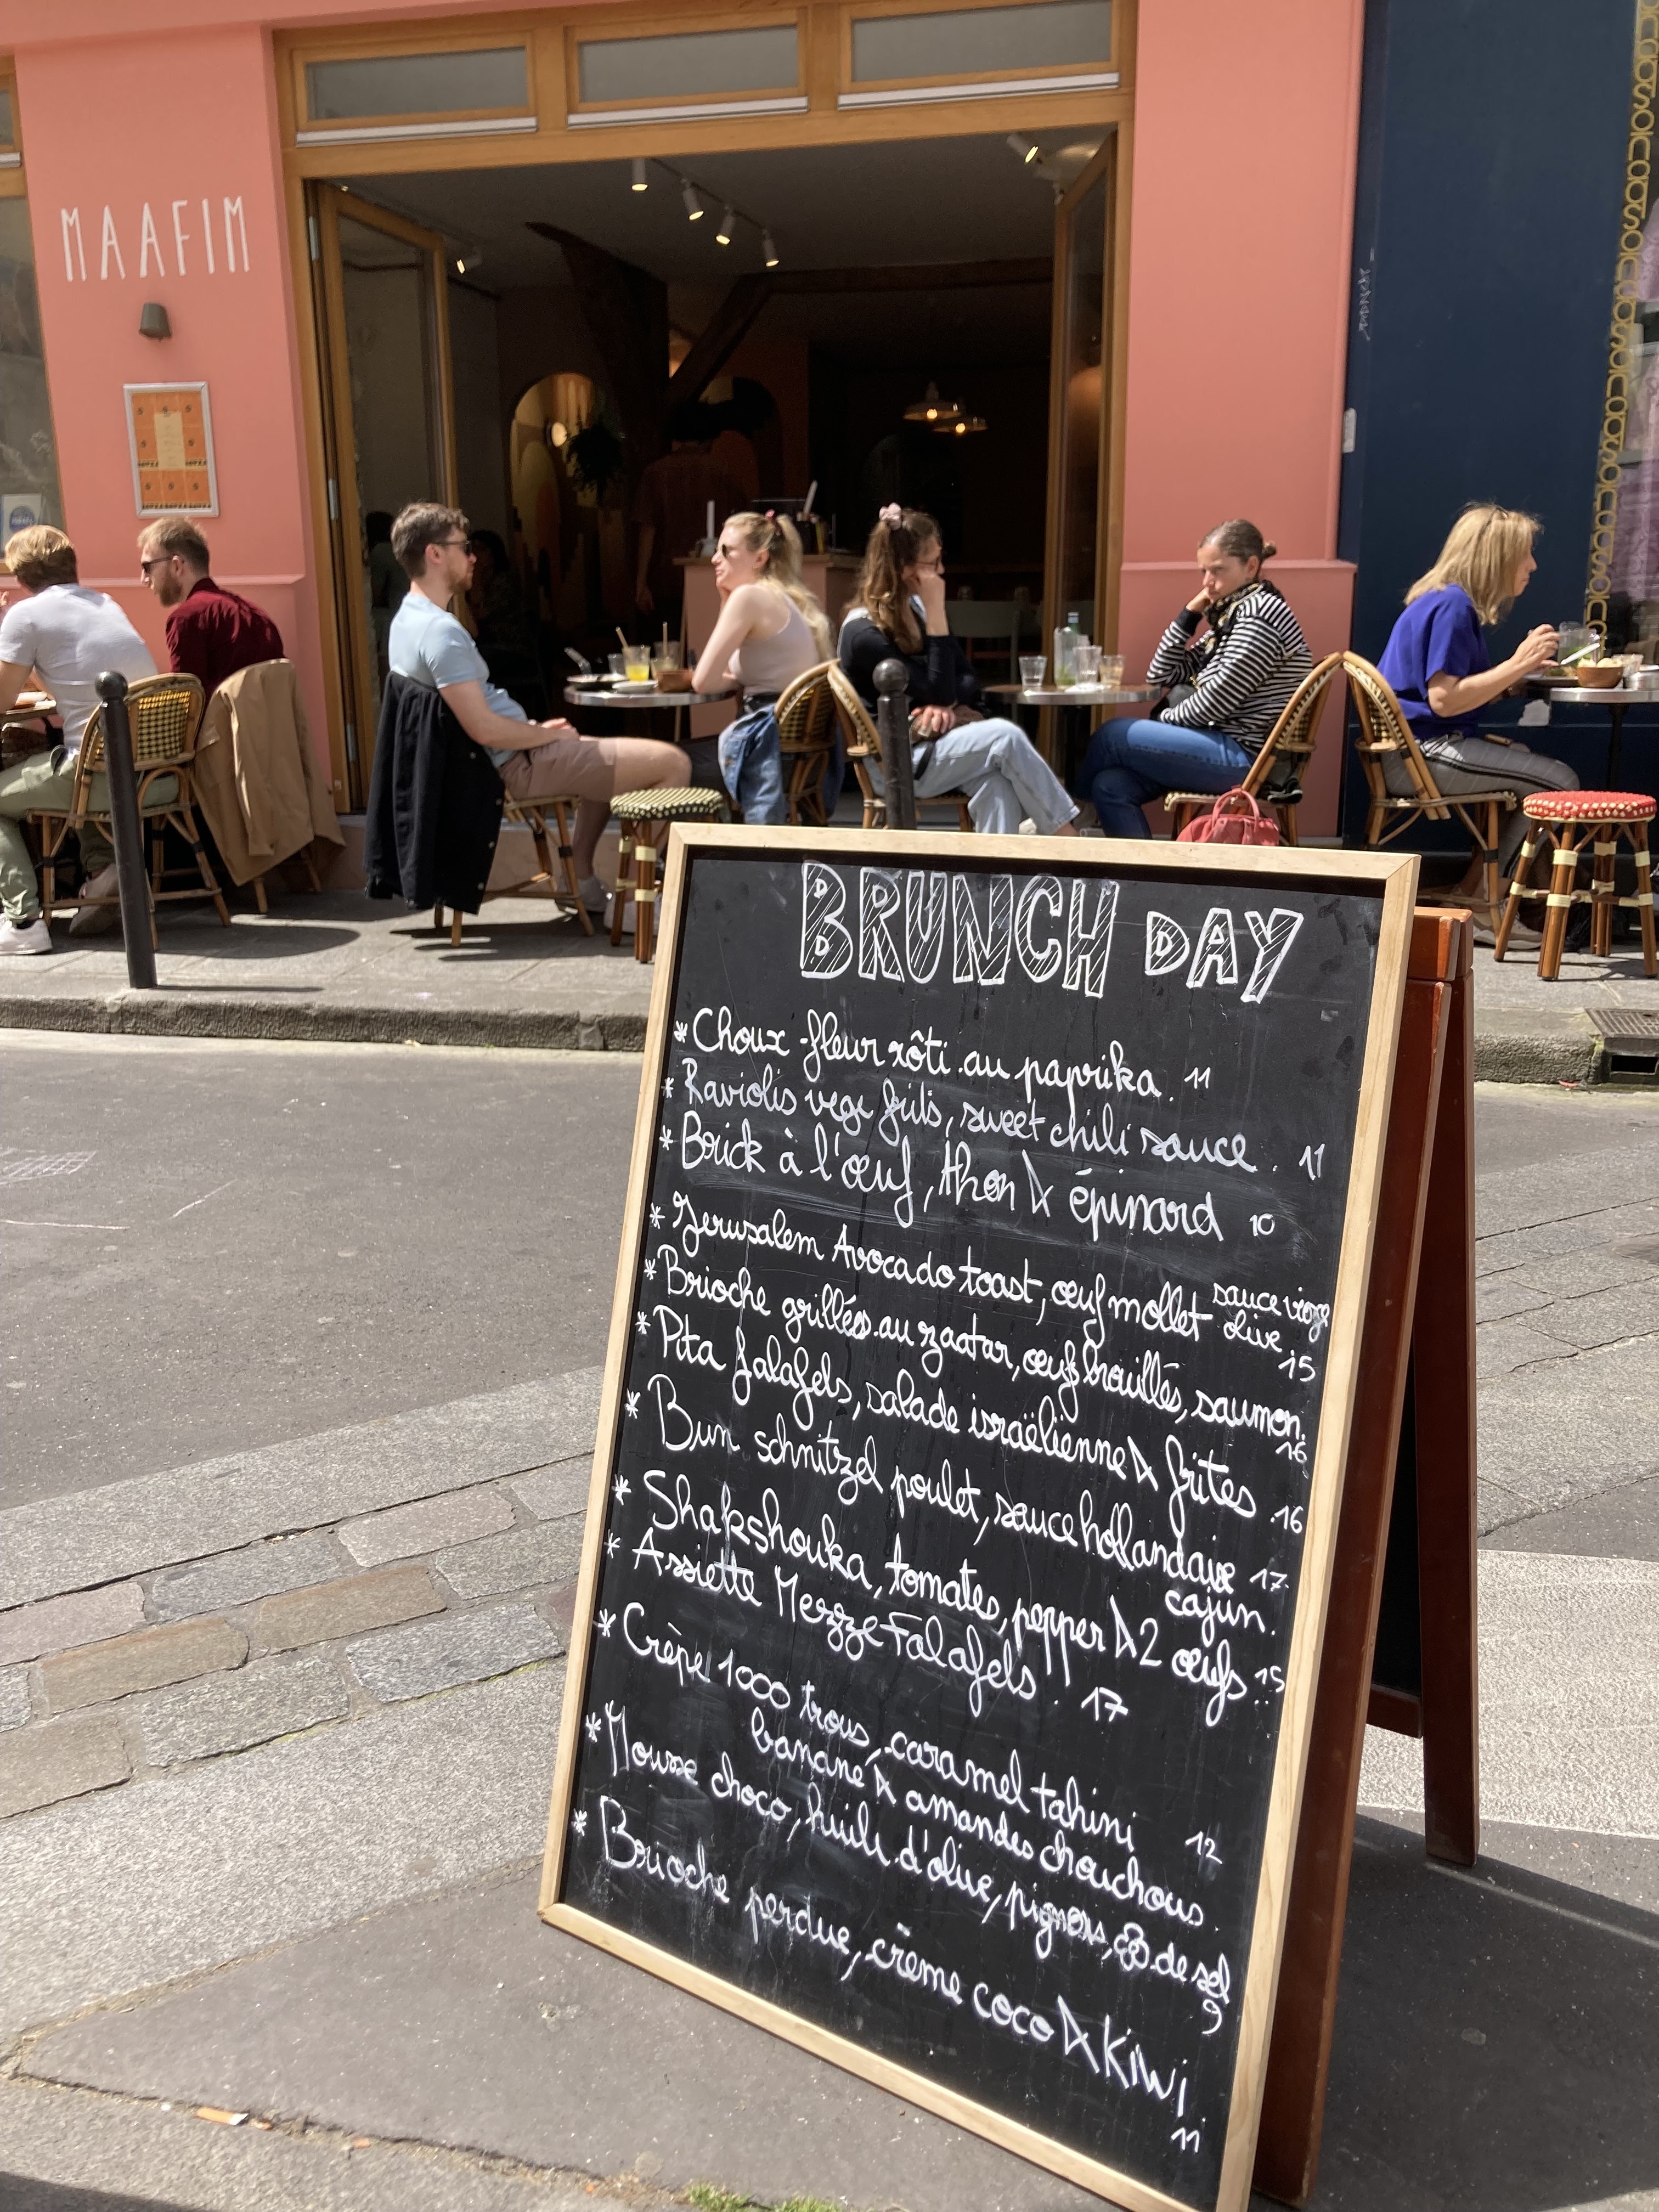 MAAFIM
BRUNCH DAY
* Choux-fleur rôti au paprika. 11
* Raviolis vege frits, sweet chili sauce. 11
* Brick à l'œuf, thon & épinard 10
* Jerusalem Avocado toast, œuf mollet sauce vierge
olive. 15
* Brioche grillées au zaatar, œufs brouillés, saumon.
16
* Pita falafels, salade israëlienne & frites 16
* Bun schnitzel poulet, sauce hollandaise 17.
cajun.
* Shakshouka, tomates, pepper & 2 œufs. 15
* Assiette Mezze Falafels. 17
* Crèpe 1000 trous, caramel tahini
banane & amandes chouchous. 12
* Mousse choco, huile d'olive, pignons, de sel
9
* Brioche perdue, crème coco & Kiwi
11